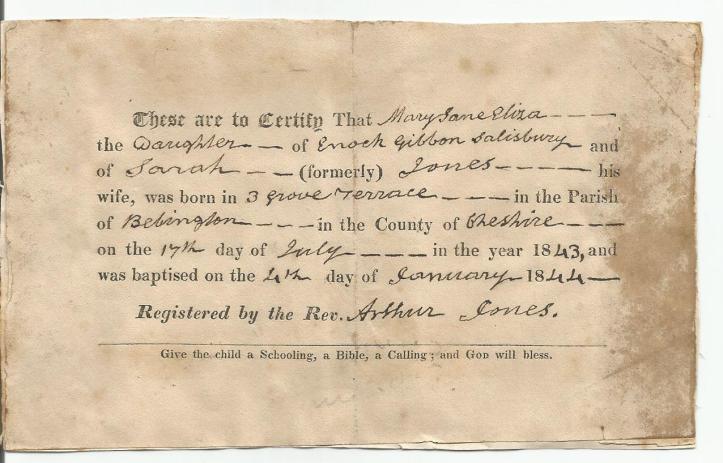 These are to Certify That Mary Jane Eliza - - - -
the Daughter - - of Enoch Gibbon Salisbury and
of Sarah - - (formerly) Jones - - - - - his
wife, was born in 3 Grove Terrace - - - - in the Parish
of Bebington - - - - in the County of Cheshire - - -
on the 17th day of July - - - - in the year 1843, and
was baptised on the 4th day of January 1844 -
Registered by the Rev. Arthur Jones.
Give the child a Schooling, a Bible, a Calling; and God will bless.